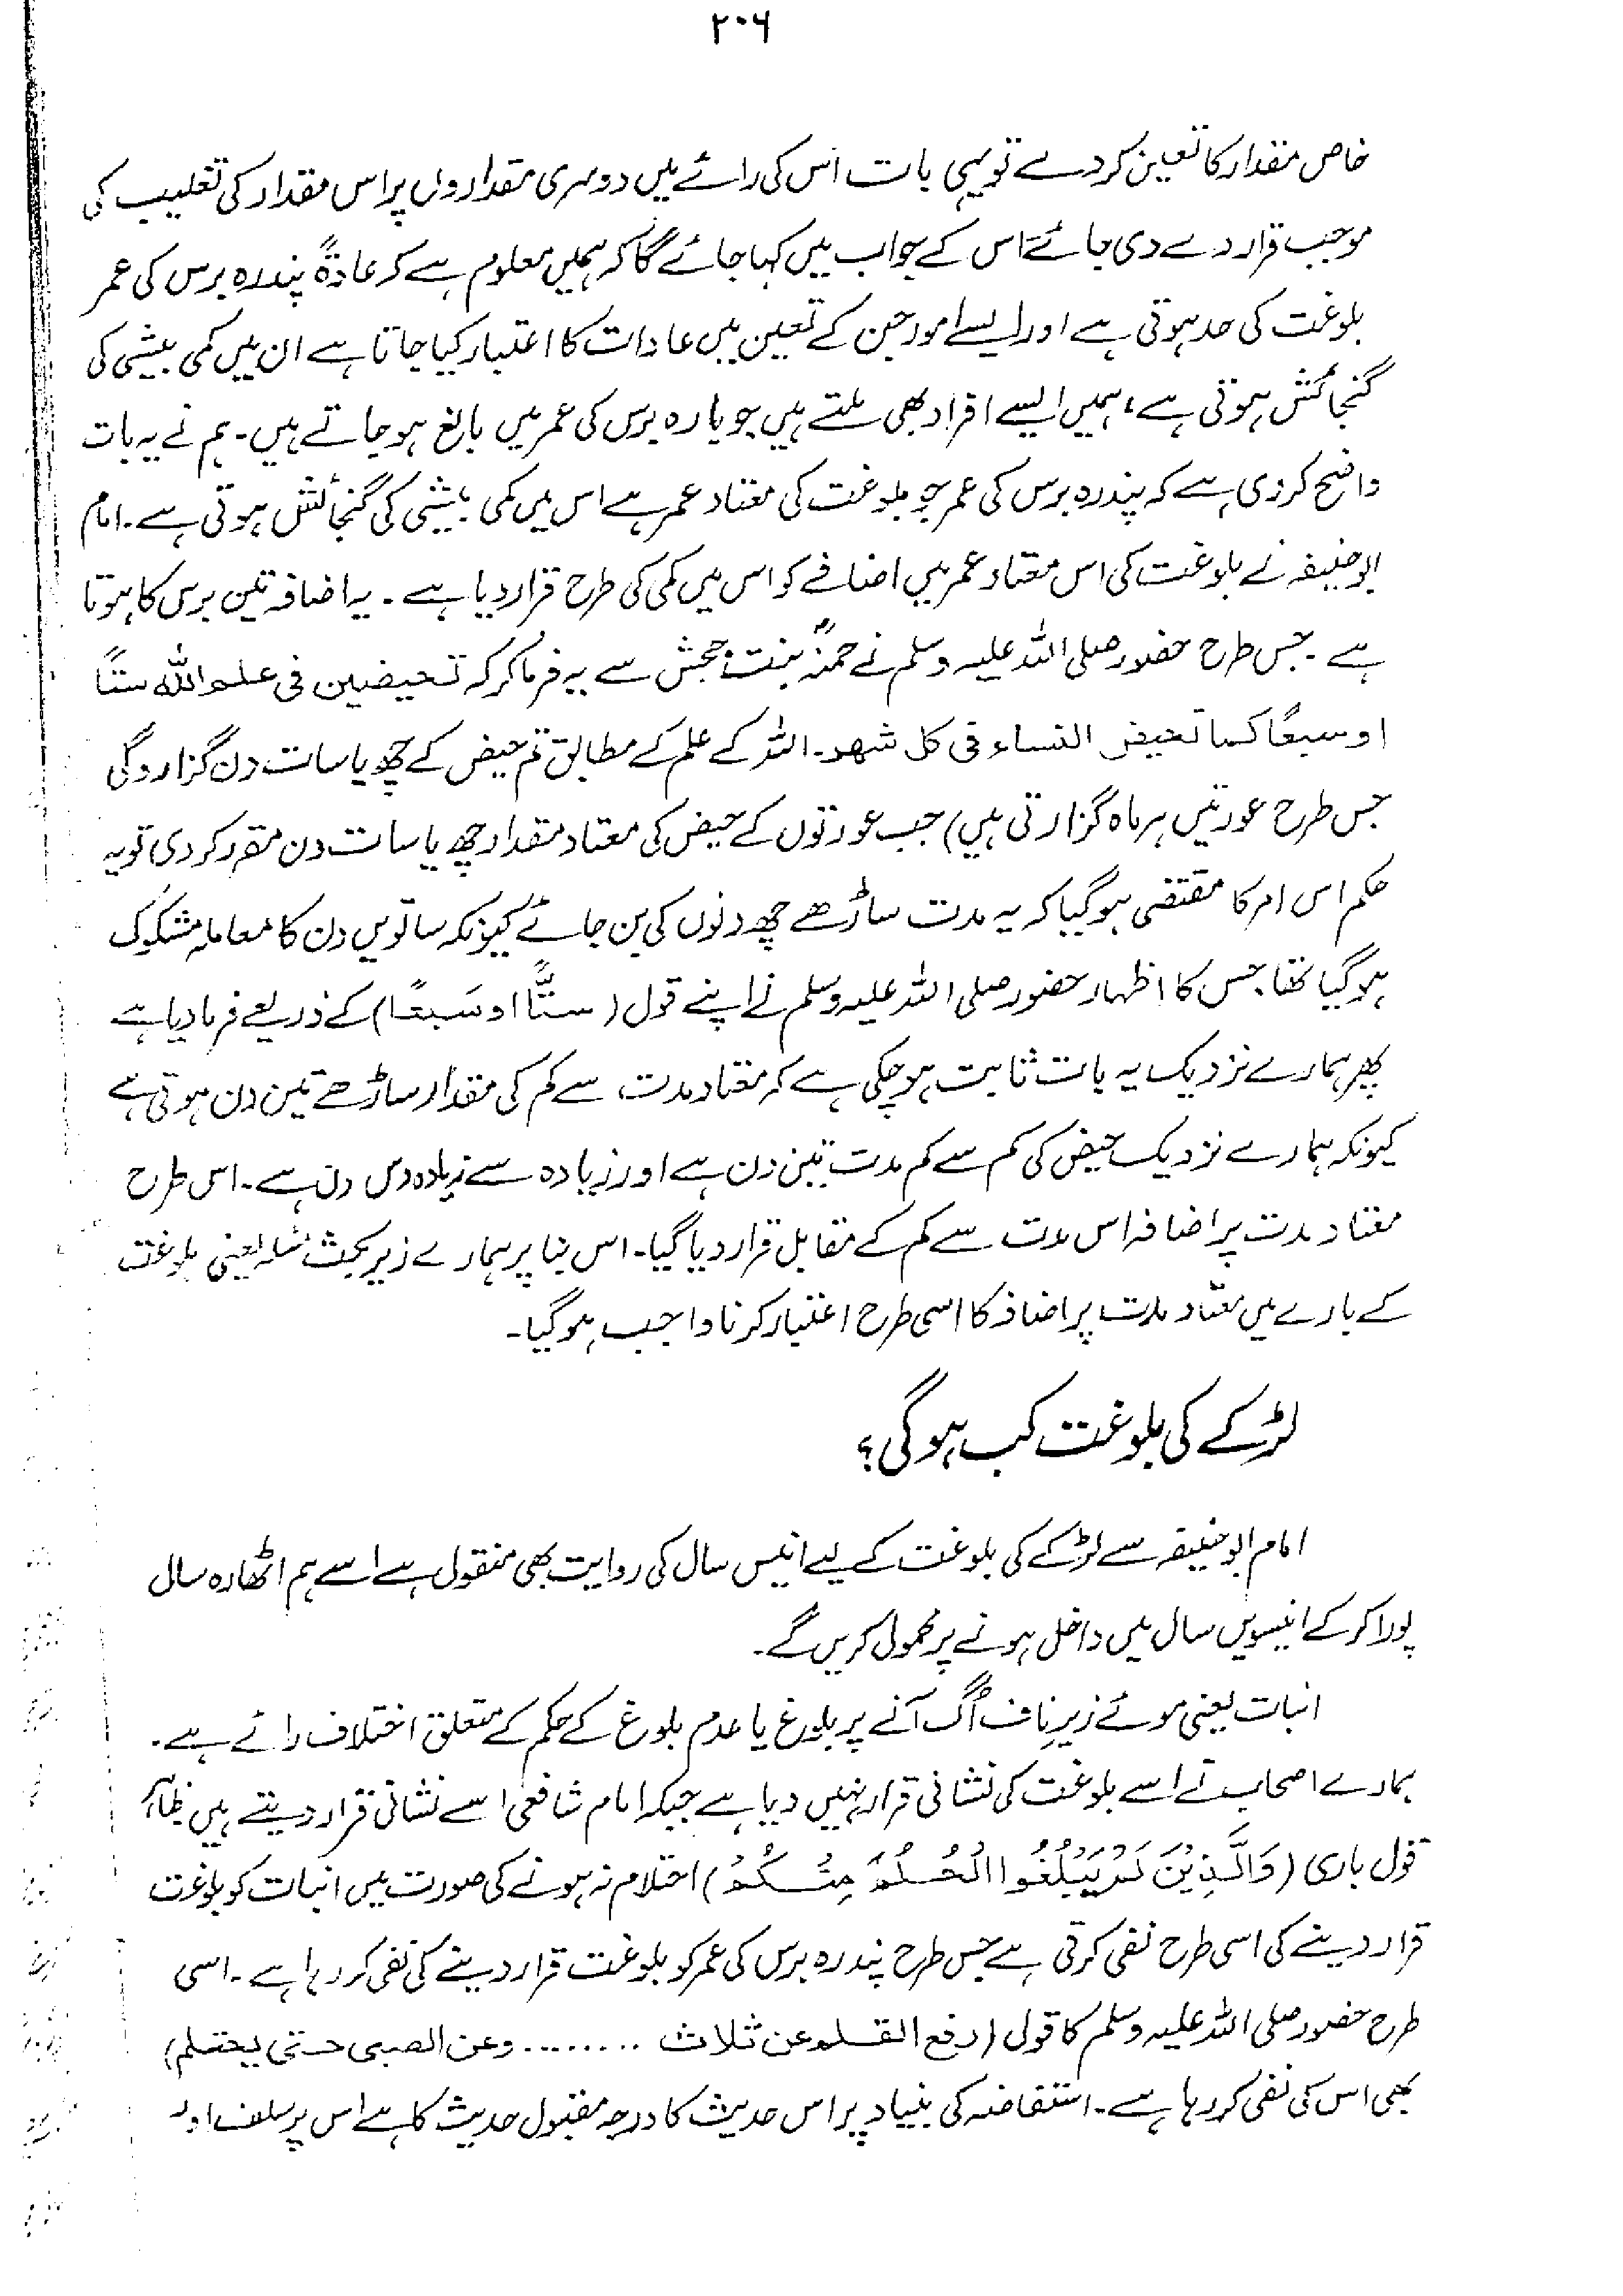 ۲۰۶
خاص مقدار کا تعین کردے تو یہی بات اس کی رائے میں دوسری مقداروں پر اس مقدار کی تغلیب کی
موجب قرار دے دی جائے۔ اس کے جواب میں کہا جائے گا کہ ہمیں معلوم ہے کہ عادۃً پندرہ برس کی عمر
بلوغت کی حد ہوتی ہے اور ایسے امور جن کے تعین میں عادات کا اعتبار کیا جاتا ہے ان میں کمی بیشی کی
گنجائش ہوتی ہے، ہمیں ایسے افراد بھی ملتے ہیں جو بارہ برس کی عمر میں بالغ ہو جاتے ہیں۔ ہم نے یہ بات
واضح کردی ہے کہ پندرہ برس کی عمر جو بلوغت کی معتاد عمر ہے اس میں کمی بیشی کی گنجائش ہوتی ہے۔ امام
ابوحنیفہ نے بلوغت کی اس معتاد عمر میں اضافے کو اس میں کمی کی طرح قرار دیا ہے۔ یہ اضافہ تین برس کا ہوتا
ہے۔ جس طرح حضور صلی اللہ علیہ وسلم نے حمنہؓ بنت جحش سے یہ فرما کر کہ تحیضین فی علم اللہ ستًا
او سبعًا کما تحیض النساء فی کل شھر۔ اللہ کے علم کے مطابق تم حیض کے چھ یا سات دن گزارو گی
جس طرح عورتیں ہر ماہ گزارتی ہیں) جب عورتوں کے حیض کی معتاد مقدار چھ یا سات دن مقرر کردی تو یہ
حکم اس امر کا مقتضی ہوگیا کہ یہ مدت ساڑھے چھ دنوں کی بن جائے کیونکہ ساتویں دن کا معاملہ مشکوک
ہوگیا تھا جس کا اظہار حضور صلی اللہ علیہ وسلم نے اپنے قول (ستًّا او سَبعًا) کے ذریعے فرمادیا ہے
پھر ہمارے نزدیک یہ بات ثابت ہوچکی ہے کہ معتاد مدت سے کم کی مقدار ساڑھے تین دن ہوتی ہے
کیونکہ ہمارے نزدیک حیض کی کم سے کم مدت تین دن ہے اور زیادہ سے زیادہ دس دن ہے۔ اس طرح
معتاد مدت پر اضافہ اس مدت سے کم کے مقابل قرار دیا گیا۔ اس بنا پر ہمارے زیر بحث مسئلہ یعنی بلوغت
کے بارے میں معتاد مدت پر اضافہ کا اسی طرح اعتبار کرنا واجب ہوگیا۔
لڑکے کی بلوغت کب ہوگی؟
امام ابوحنیفہ سے لڑکے کی بلوغت کے لیے انیس سال کی روایت بھی منقول ہے اسے ہم اٹھارہ سال
پورا کرکے انیسویں سال میں داخل ہونے پر محمول کریں گے۔
انبات یعنی موئے زیرِ ناف اُگ آنے پر بلوغ یا عدم بلوغ کے حکم کے متعلق اختلاف رائے ہے۔
ہمارے اصحاب نے اسے بلوغت کی نشانی قرار نہیں دیا ہے جبکہ امام شافعی اسے نشانی قرار دیتے ہیں ظاہر
قول باری (وَالَّذِیْنَ لَمْ یَبْلُغُوا الْحُلُمَ مِنْکُمْ) احتلام نہ ہونے کی صورت میں انبات کو بلوغت
قرار دینے کی اسی طرح نفی کرتی ہے جس طرح پندرہ برس کی عمر کو بلوغت قرار دینے کی نفی کر رہا ہے۔ اسی
طرح حضور صلی اللہ علیہ وسلم کا قول (رفع القلم عن ثلاث ........ وعن الصبی حتی یحتلم)
بھی اس کی نفی کر رہا ہے۔ استفاضہ کی بنیاد پر اس حدیث کا درجہ مقبول حدیث کا ہے اس پر سلف اور